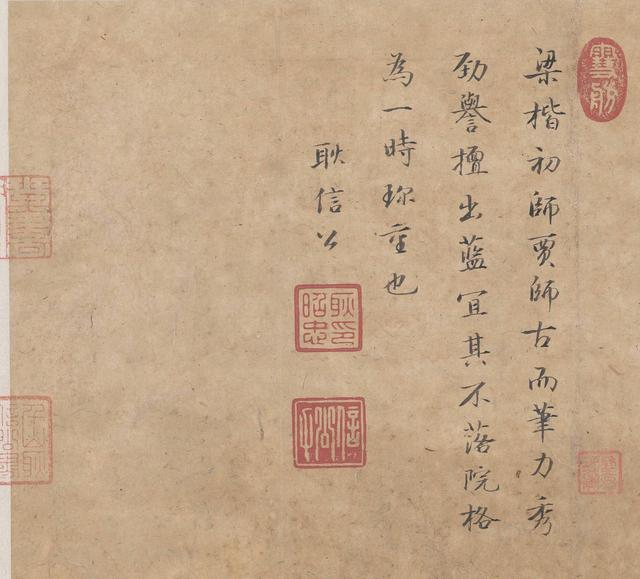 梁楷初師賈師古而筆力秀
勁譽擅出藍宜其不落院格
為一時珎重也
耿信公
耿昭忠印
信公